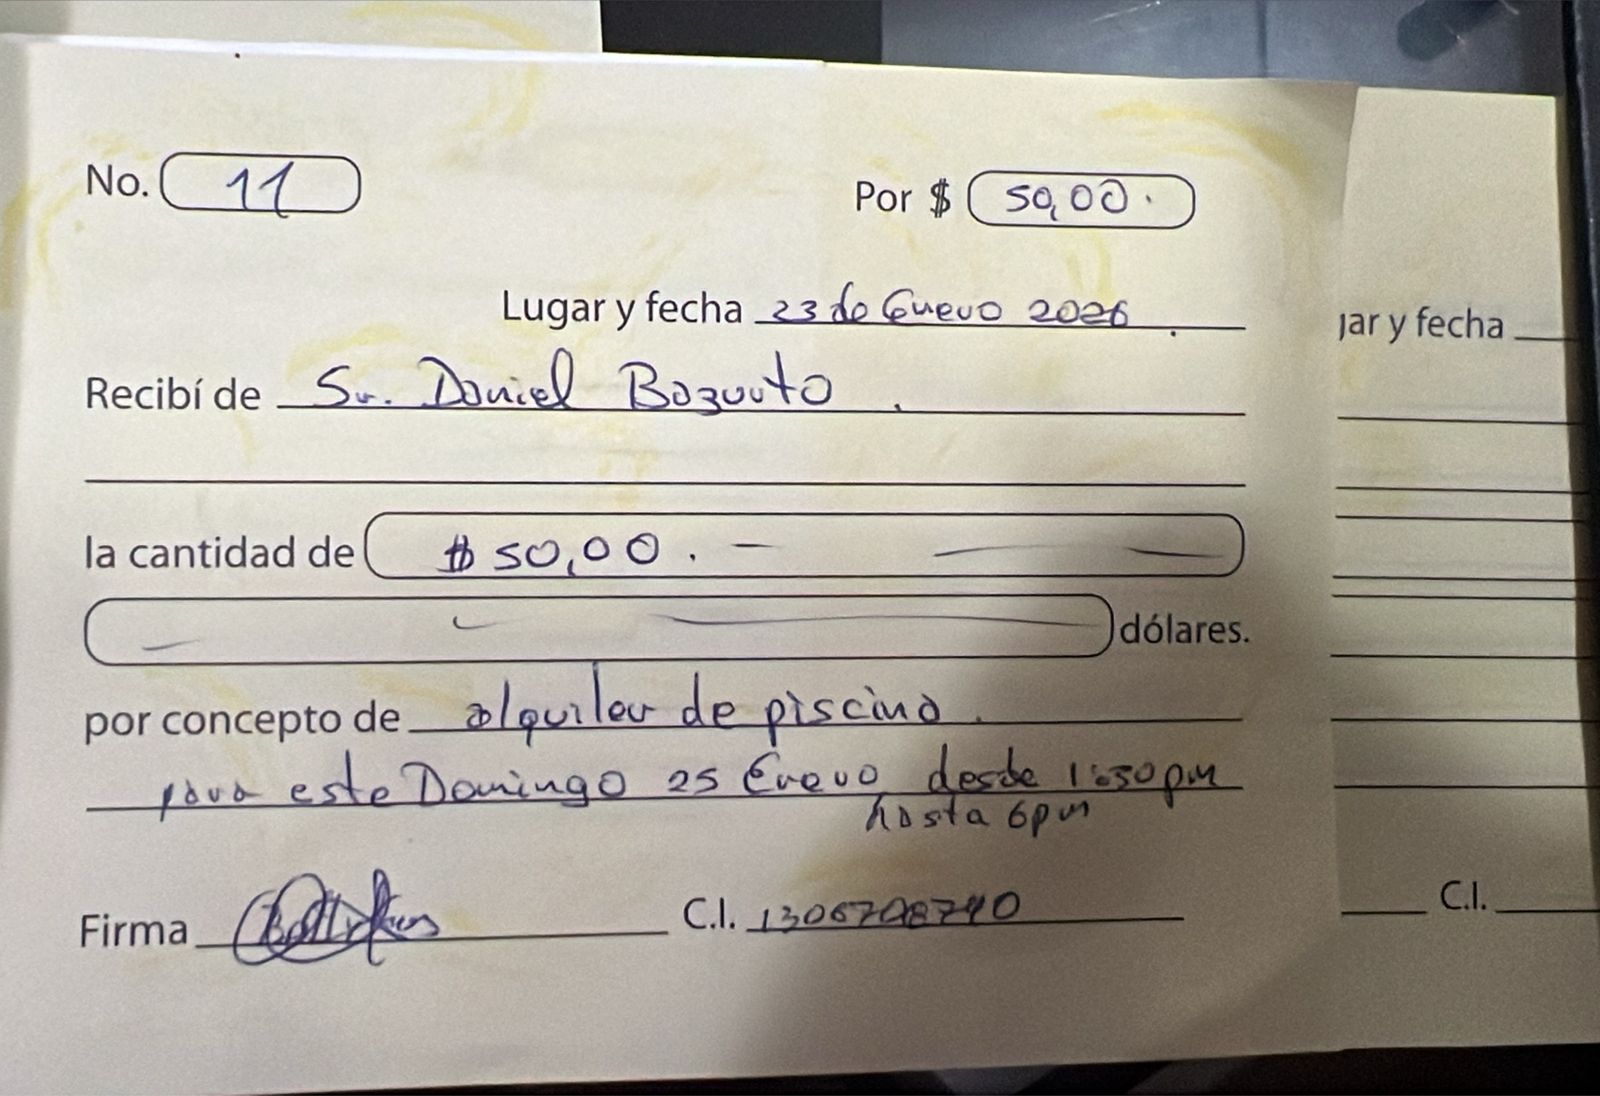 No. 11
Por $ 50,00.
Lugar y fecha 23 de Enero 2026.
jar y fecha
Recibí de Sr. Daniel Bazurto.
la cantidad de $ 50,00. -
dólares.
por concepto de alquiler de piscina.
para este Domingo 25 Enero desde 1:30pm
hasta 6pm
Firma C.I.
C.I.